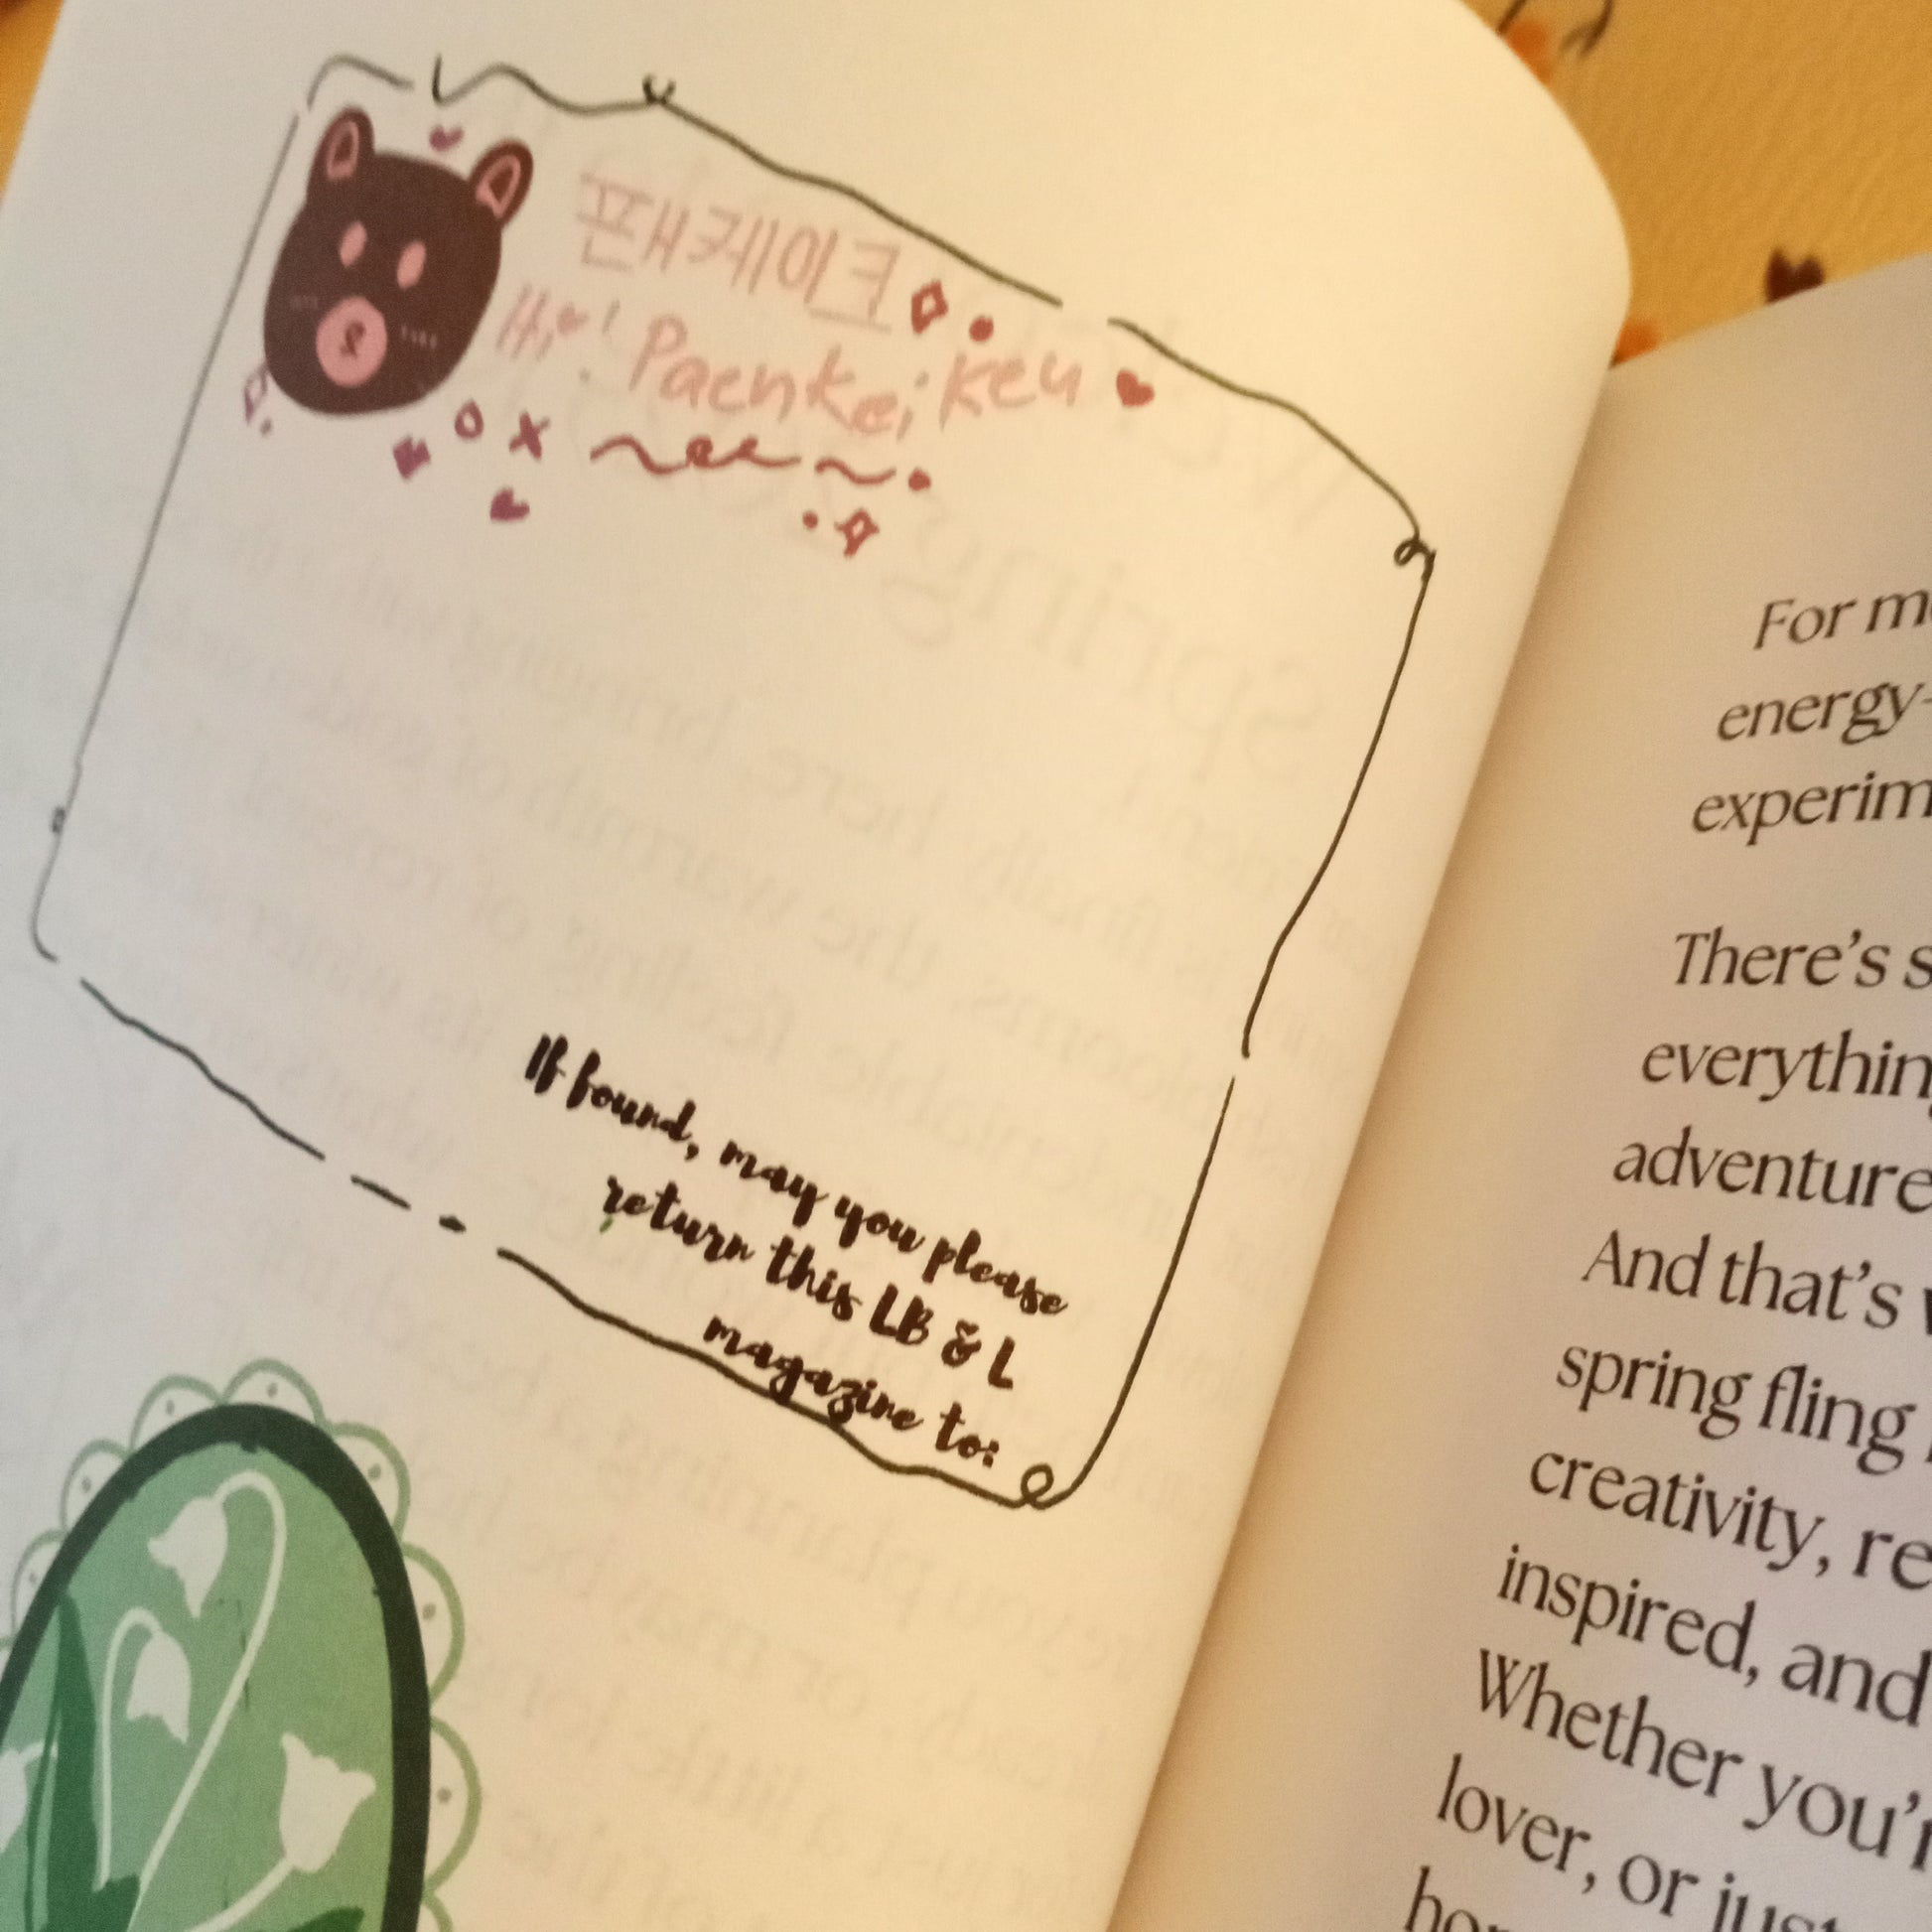 팬케이크
Hi! Paenkeikeu
If found, may you please
return this LB & L
magazine to:
For
energy-
There's
everything
adventure
And that's
spring fling
creativity,
inspired, and
Whether
lover, or